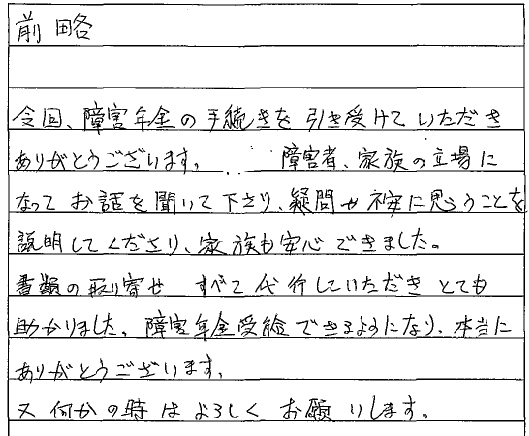 前略
今回、障害年金の手続きを引き受けていただき
ありがとうございます。 障害者、家族の立場に
なってお話を聞いて下さり、疑問や不安に思うことを
説明してくださり、家族も安心できました。
書類の取り寄せ すべて代行していただきとても
助かりました。障害年金受給できるようになり、本当に
ありがとうございます。
又何かの時はよろしくお願いします。